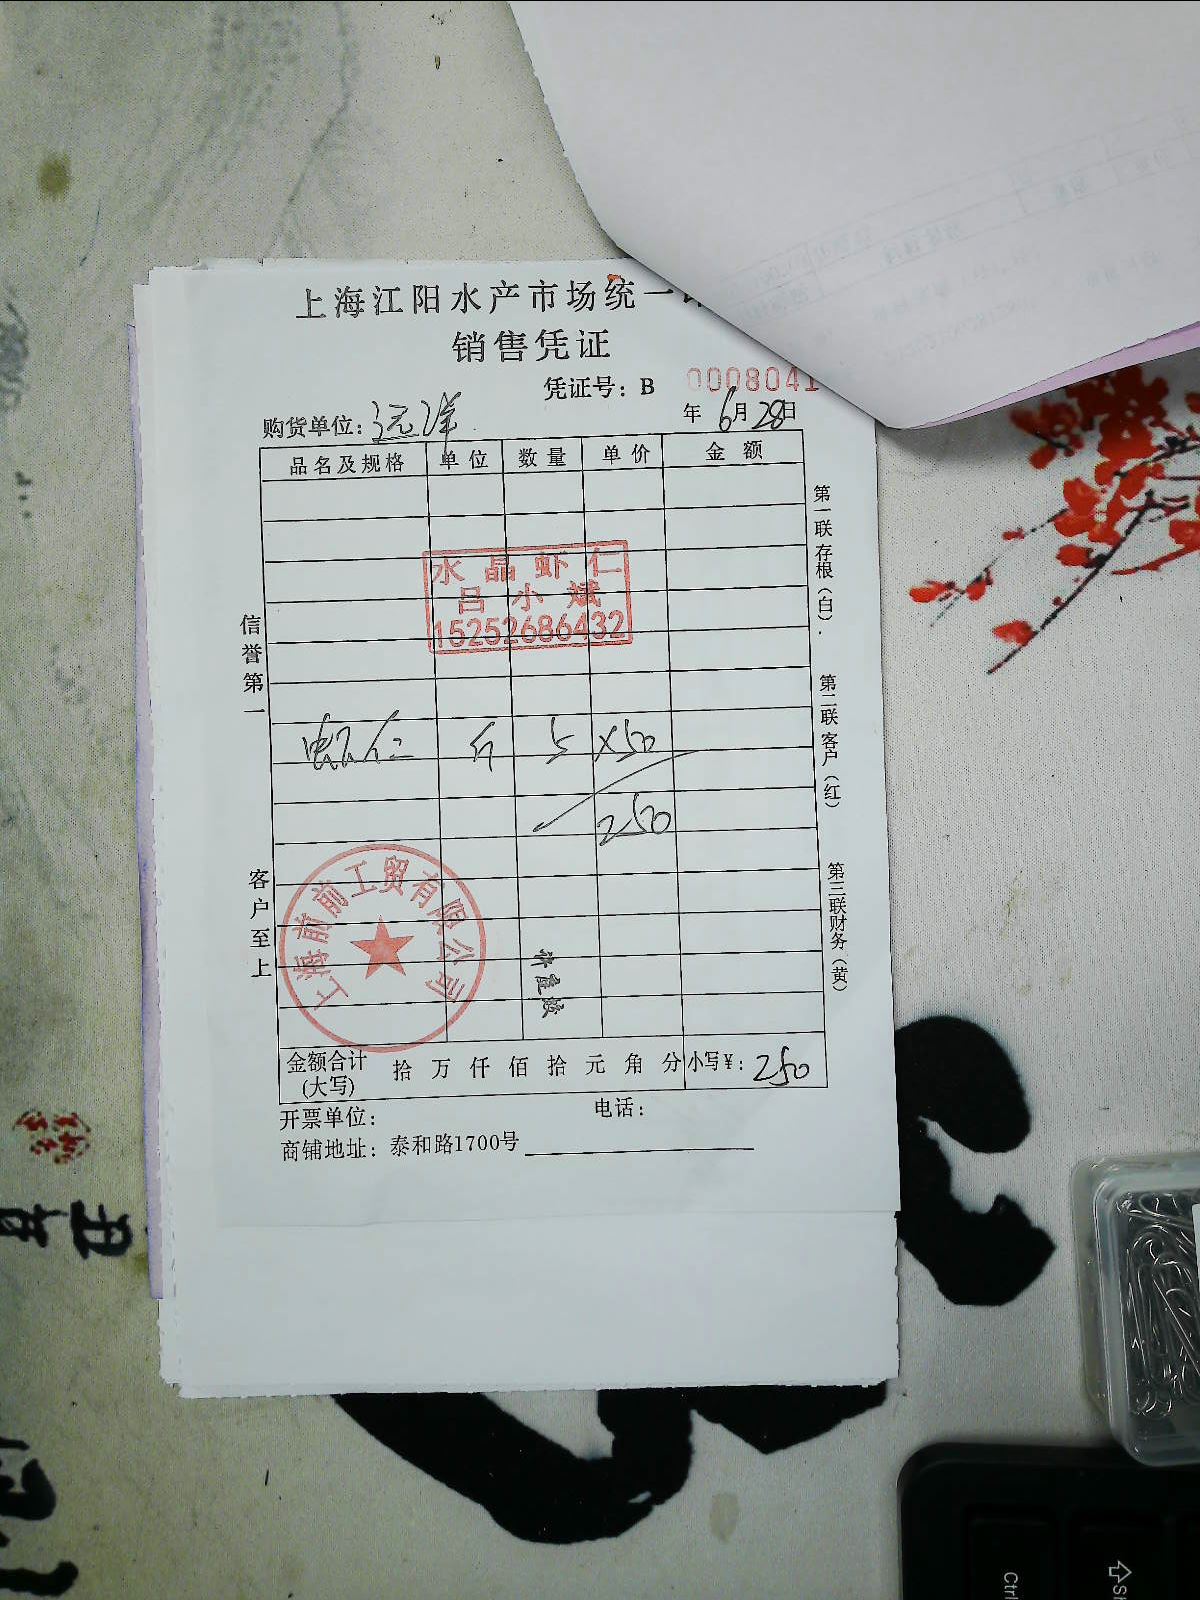 上海江阳水产市场统一
销售凭证
凭证号：B 0008041
购货单位：远洋 年 6月28日
品名及规格 单位 数量 单价 金额
水晶虾仁
吕小斌
15252686432
虾仁 斤 5 ×50
250
上海前前工贸有限公司
金额合计(大写) 拾 万 仟 佰 拾 元 角 分 小写¥：250
开票单位： 电话：
商铺地址：泰和路1700号
信誉第一
客户至上
第一联存根（白）.
第二联客户（红）
第三联财务（黄）
Ctrl